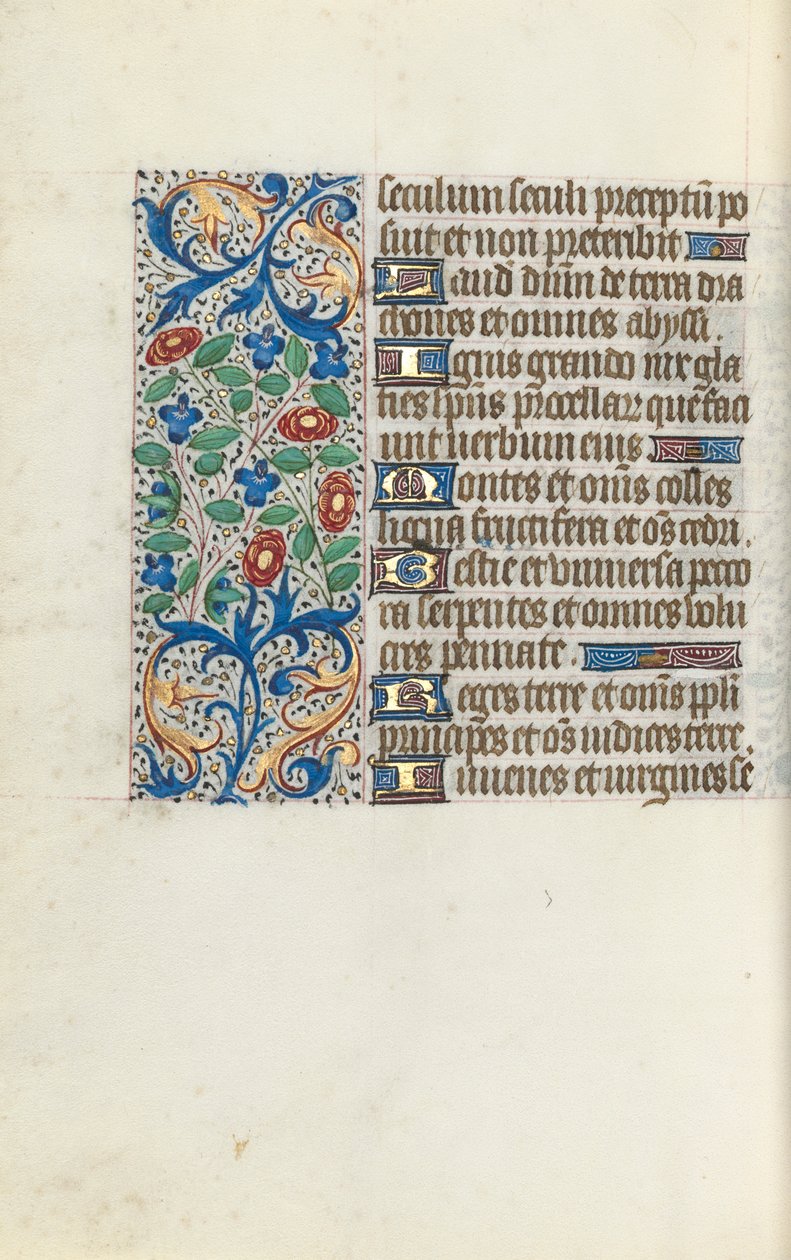 seculum seculi preceptū po
suit et non preteribit
Laud̄ dūm de terra dra
chones et omnes abyssi.
Ignis grando nix gla
cies sp̄us p̄cellaꝝ que faci
unt uerbum eius
Montes et om̄s colles
ligna fructifera et os̄ cedri.
Bestie et vniuersa peco
ra serpentes et omnes volu
cres pennate.
Reges terre et om̄s pp̄li
principes et os̄ iudices terre.
Iuuenes et uirgines se